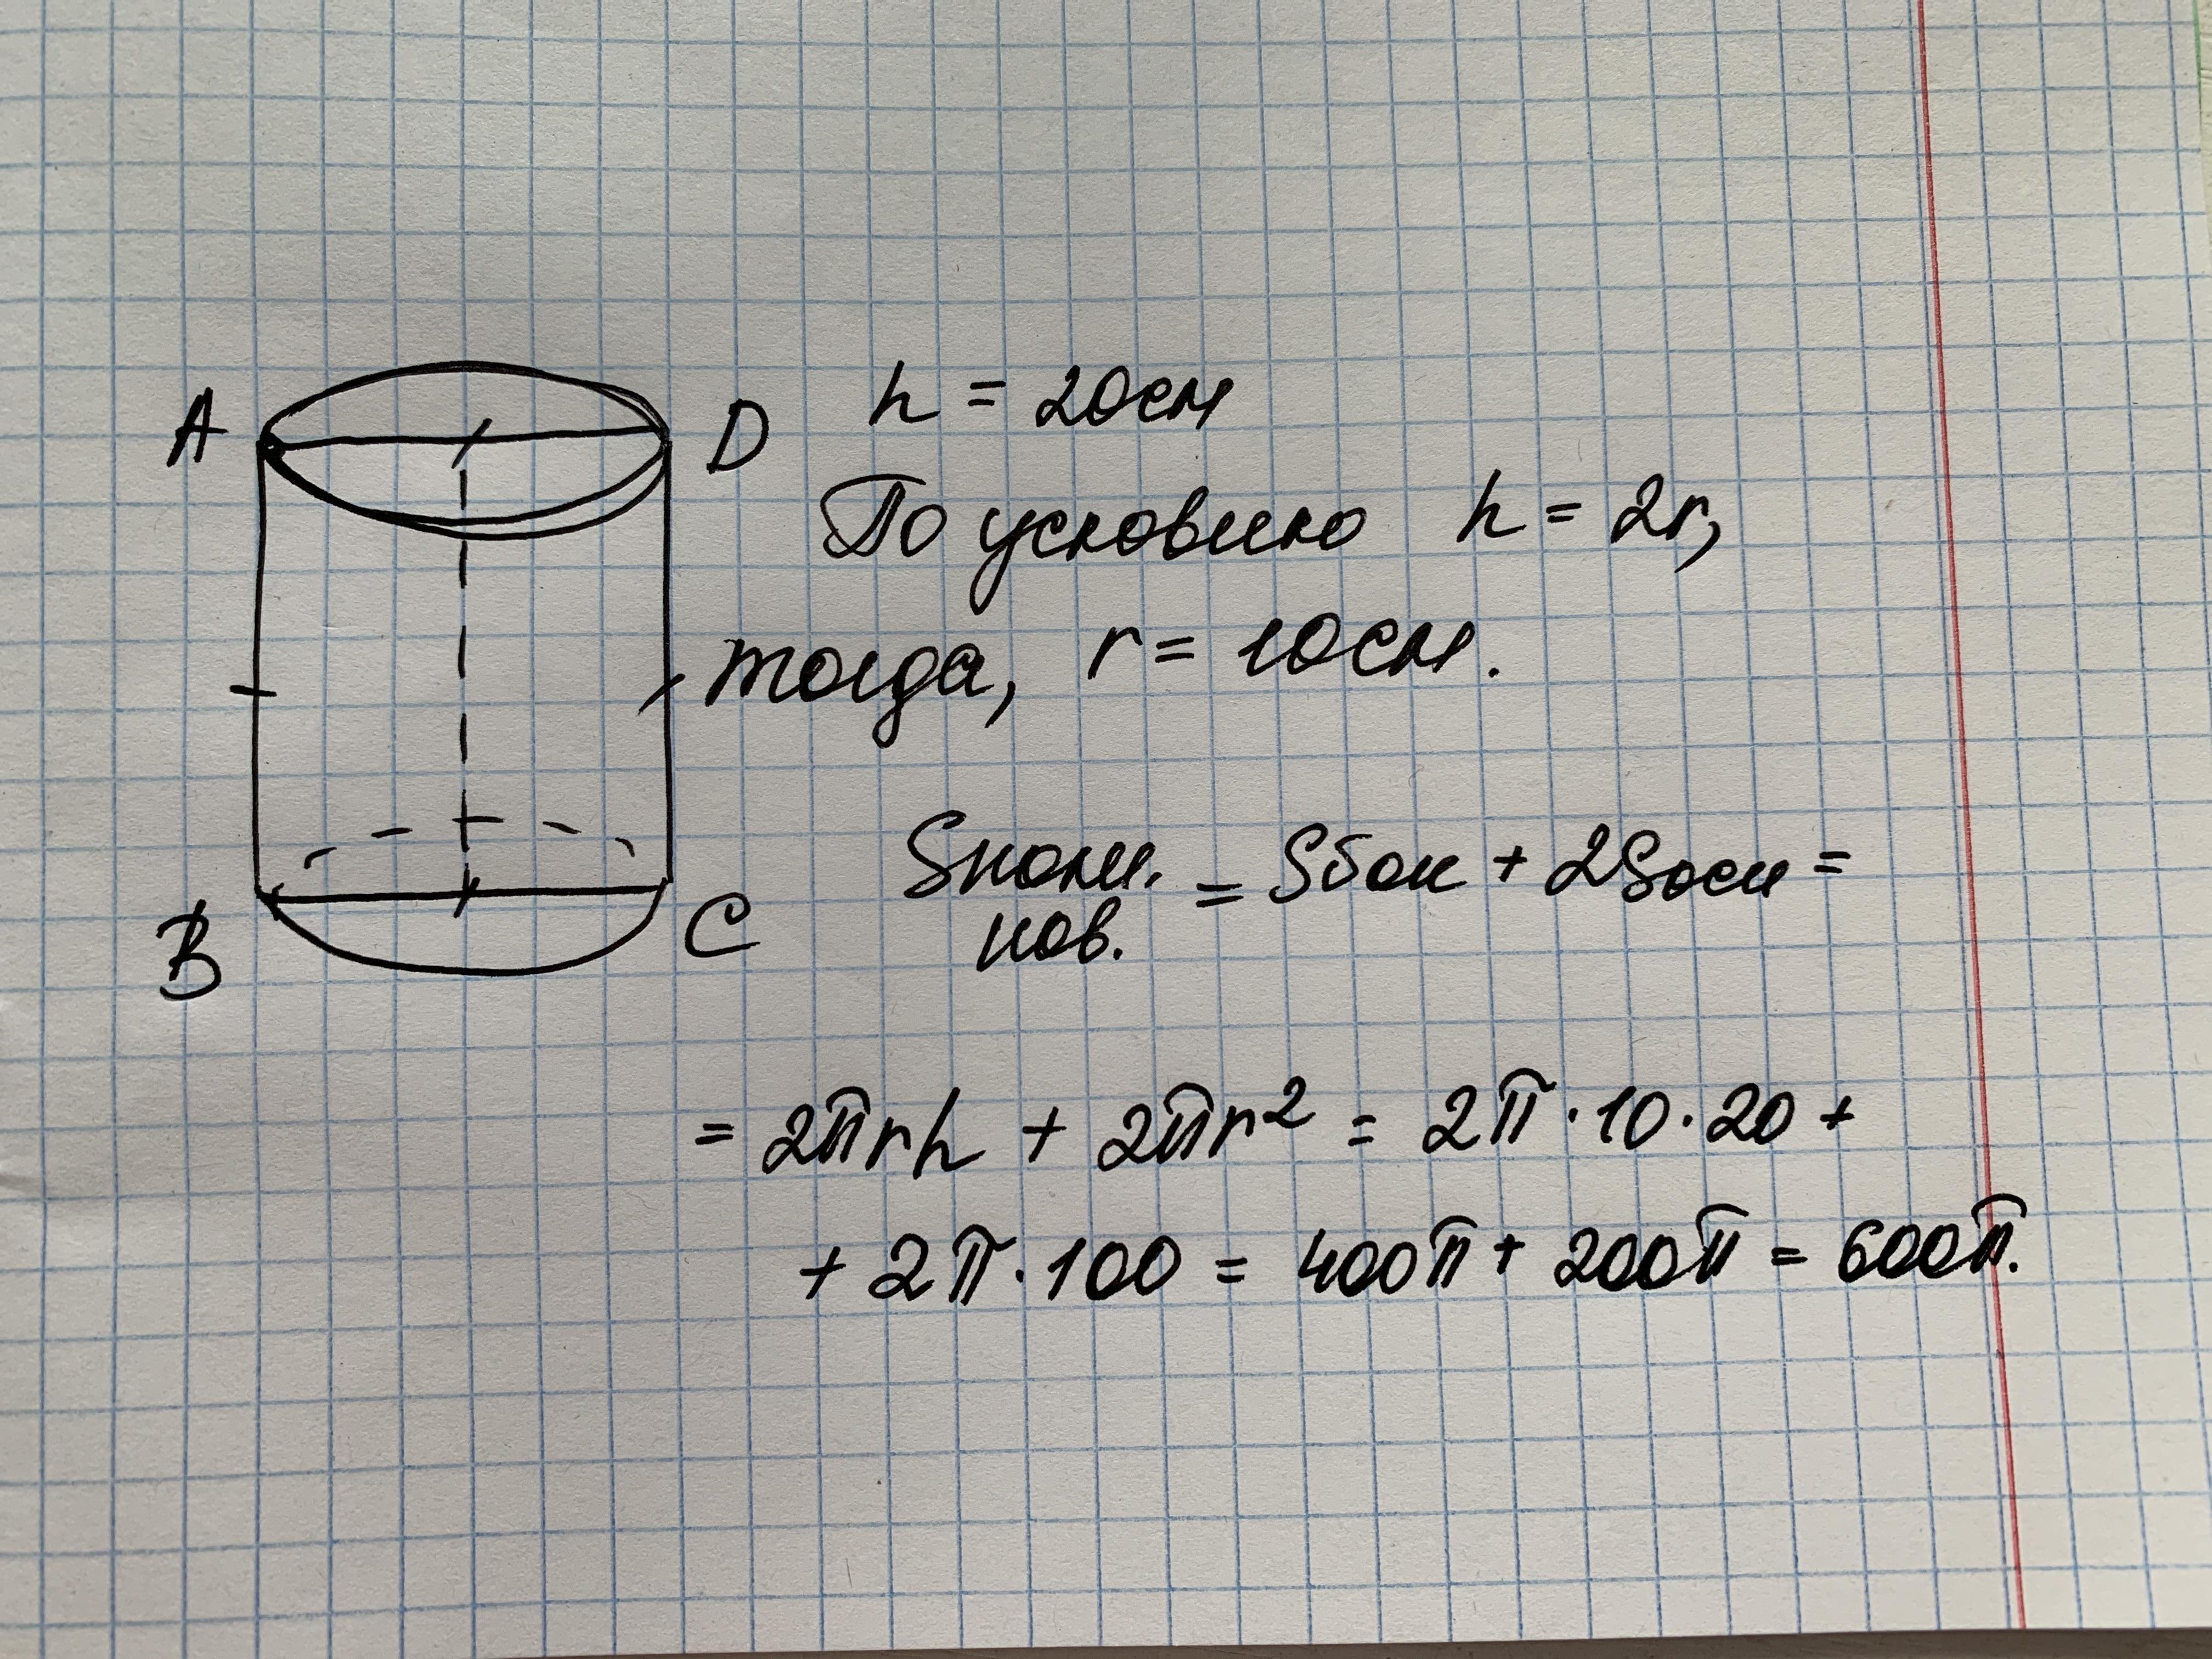 A
D
h = 20см
По условию h = 2r,
тогда, r = 10см.
Sполн. = Sбок + 2Sосн =
пов.
B
C
= 2πrh + 2πr² = 2π · 10 · 20 +
+ 2π · 100 = 400π + 200π = 600π.